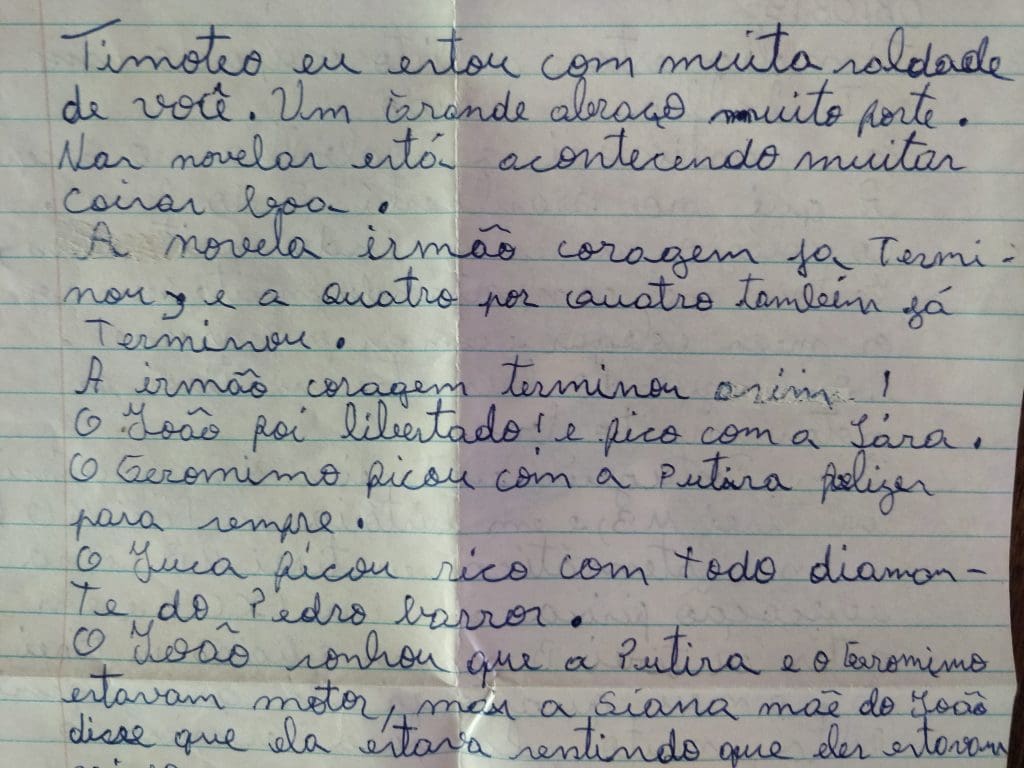 Timoteo eu estou com muita saldade
de você. Um Grande abraço muito forte.
Nas novelas está acontecendo muitas
Coisas boa.
A novela irmão coragem ja Termi-
nou, e a Quatro por Quatro também já
Terminou.
A irmão coragem terminou asim!
O João foi libertado! e fico com a Lára.
O Geromimo ficou com a Putira felizes
para sempre.
O Juca ficou rico com todo diaman-
Te do Pedro barros.
O João sonhou que a Putira e o Geromimo
estavam mortos, mas a Siana mãe do João
disse que ela estava sentindo que eles estavam